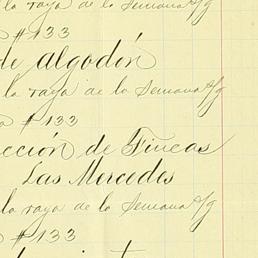 la raya de la Semana s/g
#133
de algodón
la raya de la Semana s/g
#133
cción de Fincas
Las Mercedes
la raya de la Semana s/g
#133